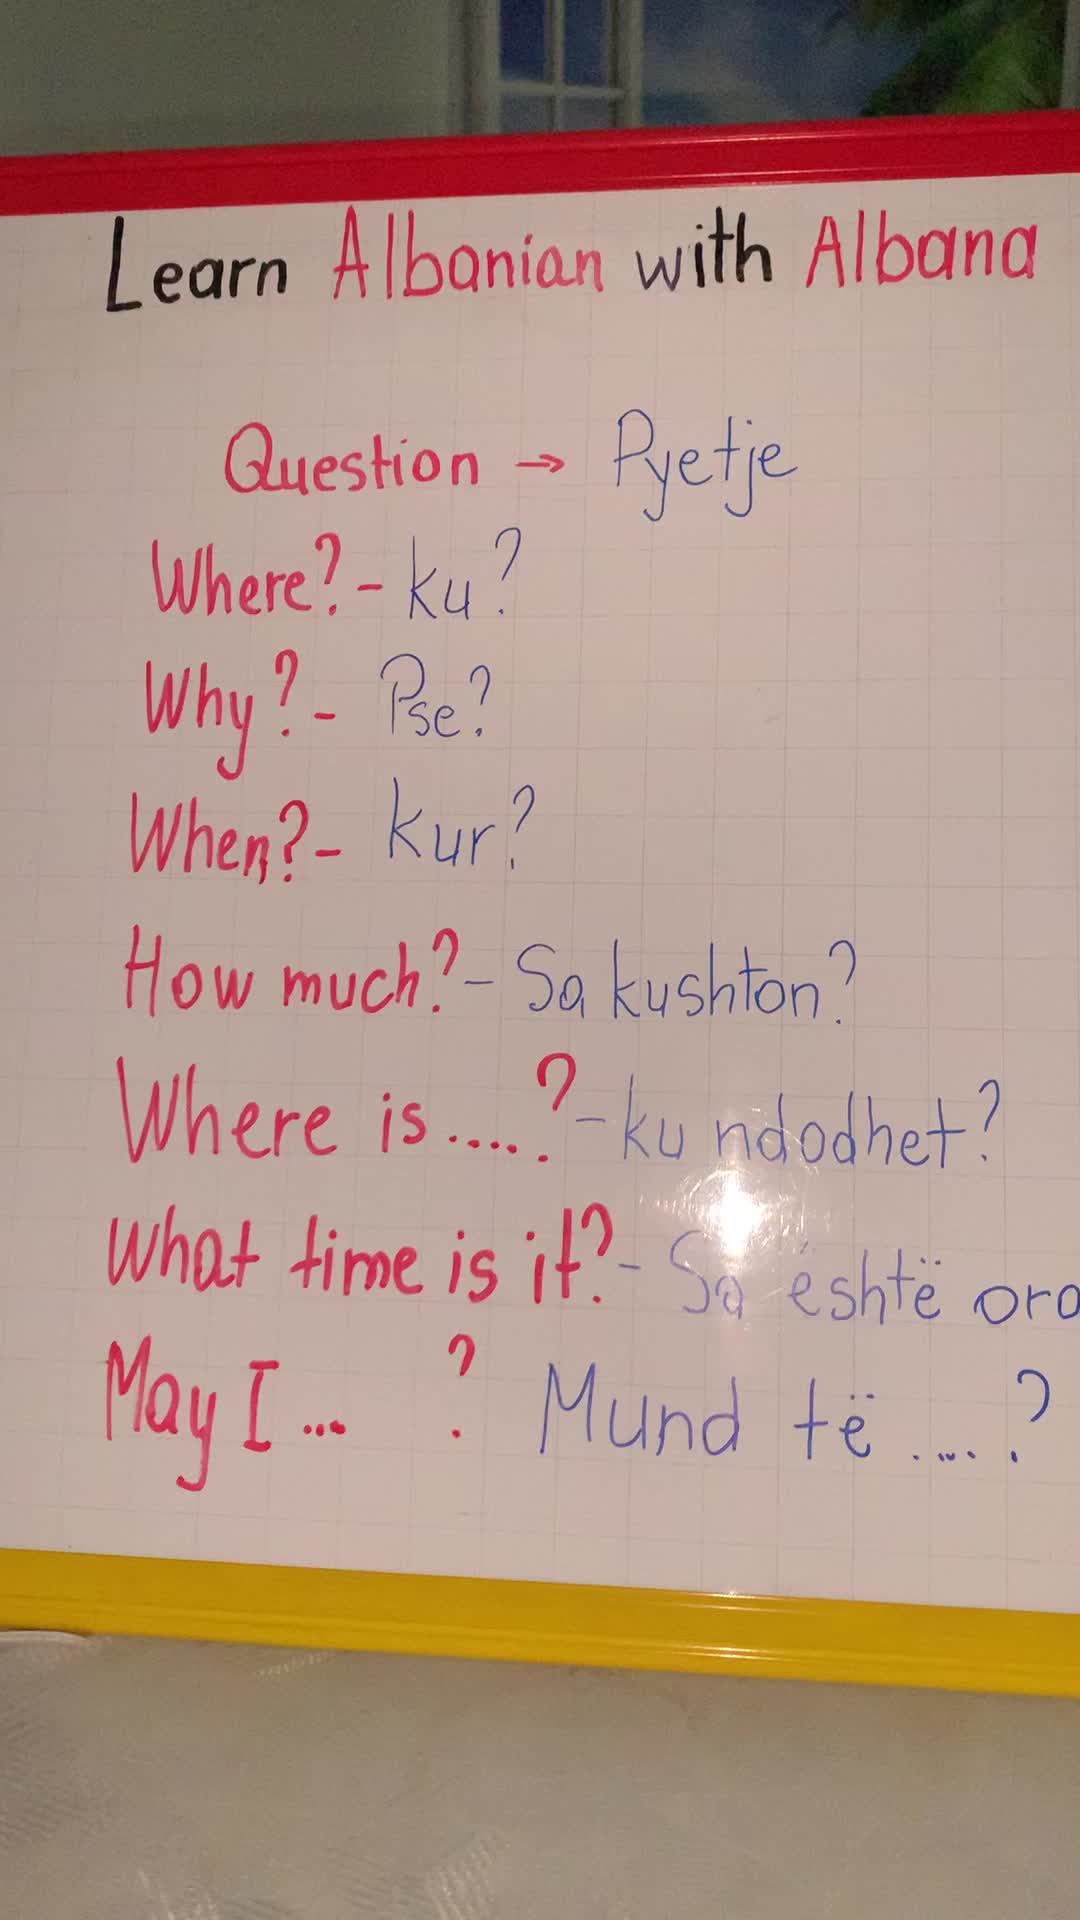 Learn Albanian with Albana
Question → Pyetje
Where? - Ku?
Why? - Pse?
When? - Kur?
How much? - Sa kushton?
Where is ....? - Ku ndodhet?
What time is it? - Sa është ora
May I ... ? Mund të ....?